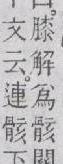 膝解為骸關
文云連骸下